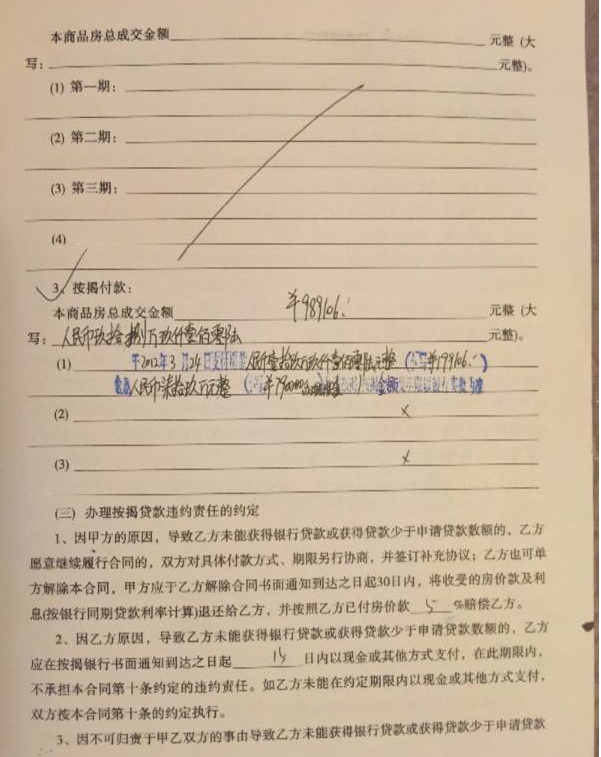 本商品房总成交金额 元整(大
写: 元整)。
(1) 第一期:
(2) 第二期:
(3) 第三期:
(4)
3、按揭付款:
本商品房总成交金额 ¥989106.: 元整(大
写: 人民币玖拾捌万玖仟壹佰零陆 元整)。
(1) 于2012年3月24日支付 人民币壹拾玖万玖仟壹佰零陆元整(小写¥199106.:)
人民币柒拾玖万元整(小写¥790000 金额
(2) ×
(3) ×
(三) 办理按揭贷款违约责任的约定
1、因甲方的原因,导致乙方未能获得银行贷款或获得贷款少于申请贷款数额的,乙方
愿意继续履行合同的,双方对具体付款方式、期限另行协商,并签订补充协议;乙方也可单
方解除本合同,甲方应于乙方解除合同书面通知到达之日起30日内,将收受的房价款及利
息(按银行同期贷款利率计算)退还给乙方,并按照乙方已付房价款 5 %赔偿乙方。
2、因乙方原因,导致乙方未能获得银行贷款或获得贷款少于申请贷款数额的,乙方
应在按揭银行书面通知到达之日起 15 日内以现金或其他方式支付,在此期限内,
不承担本合同第十条约定的违约责任。如乙方未能在约定期限内以现金或其他方式支付,
双方按本合同第十条的约定执行。
3、因不可归责于甲乙双方的事由导致乙方未能获得银行贷款或获得贷款少于申请贷款